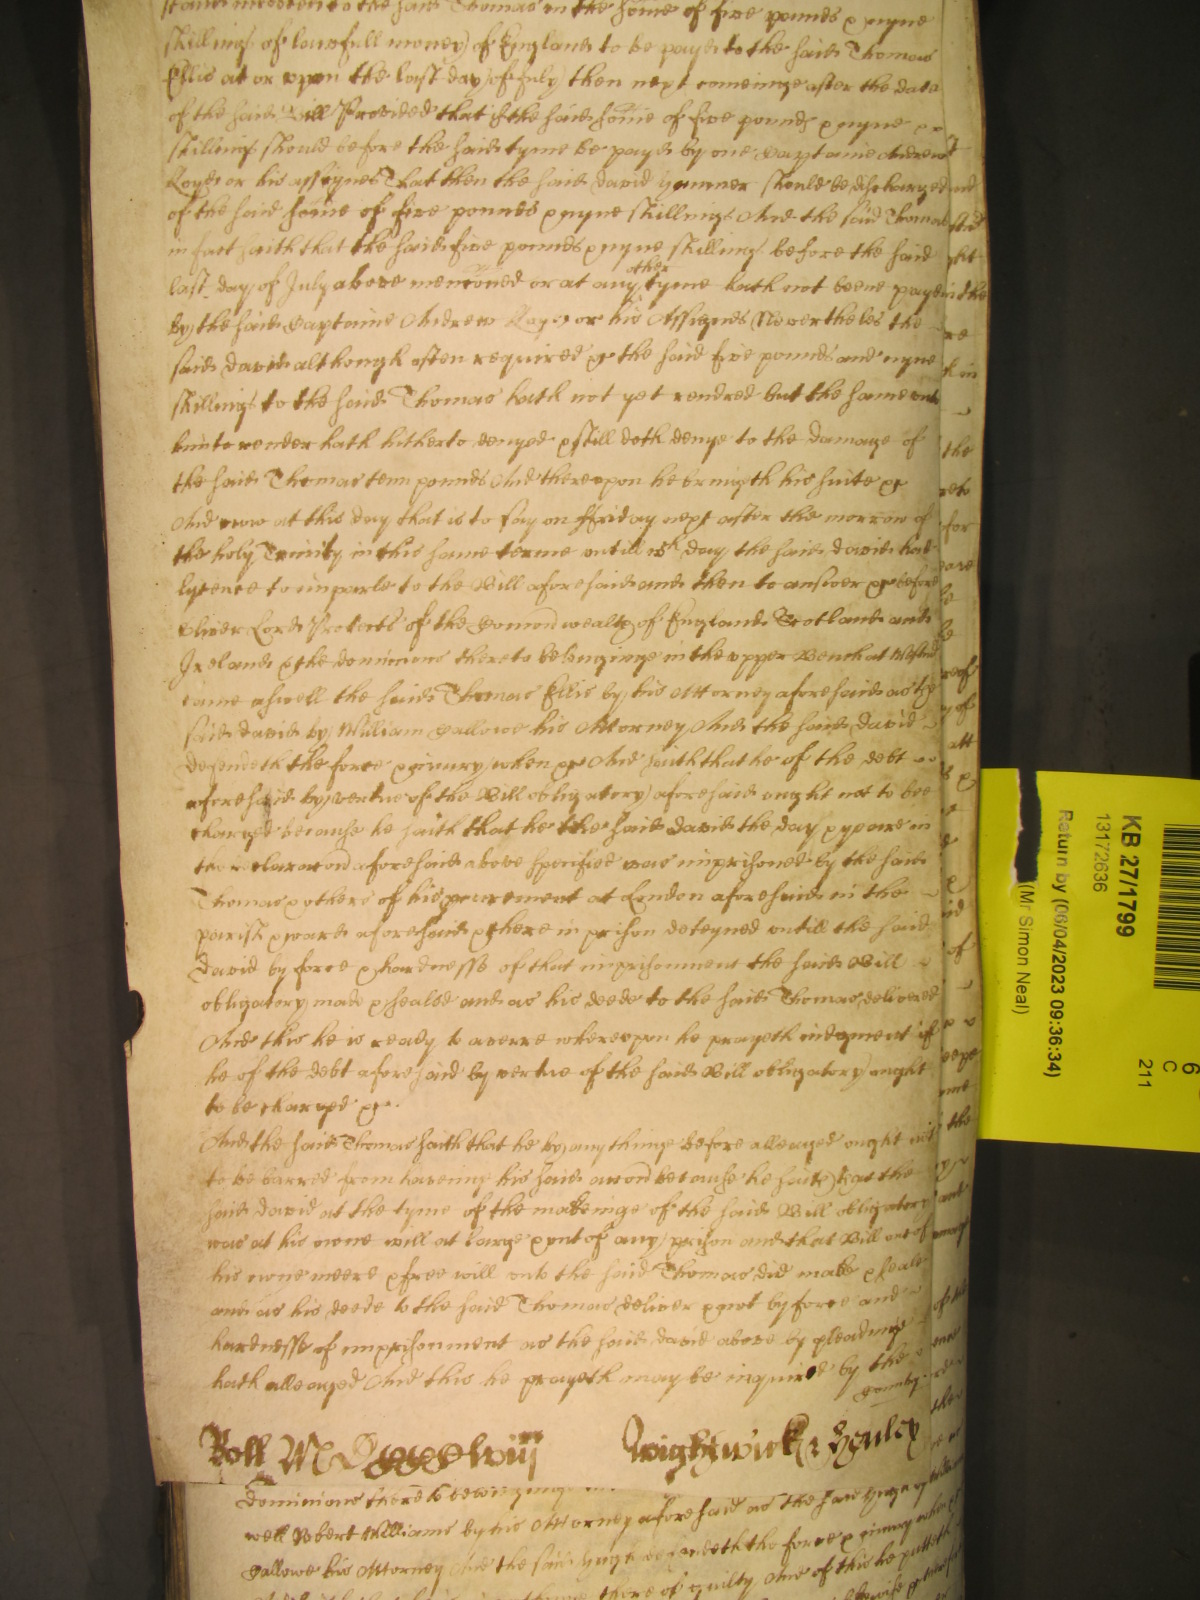 stand indebted to the said Thomas in the some of five pounds & nyne
shillings of lawfull money of England to be payd to the said Thomas
Ellis at or upon the last day of July then next comeinge after the date
of the said Bill Provided that if the said some of five pounds & nyne
shillings should before the said tyme be payd by one Captaine Andrew
or his assignes That then the said David should be discharged
of the said some of five pounds & nyne shillings And the said Thomas
in fact saith that the said five pounds & nyne shillings before the said
last day of July above mentioned or at any other tyme hath not beene payd
by the said Captaine Andrew or his Assignes Nevertheles the
said David although often required &c the said five pounds and nyne
shillings to the said Thomas hath not yet rendred but the same unto
him to render hath hitherto denyed & still doth denye to the damage of
the said Thomas tenn pounds And thereupon he bringth his suite &c
And now at this day that is to say on ffriday next after the morrow of
the holy Trinity in this same terme untill wch day the said David had
lycence to imparle to the Bill aforesaid and then to answer &c before
Oliver Lord Protector of the Comon wealth of England Scotland and
Ireland & the dominions thereto belonginge in the upper Bench at Westm
came aswell the said Thomas Ellis by his Attorney aforesaid as the
said David by William Gallowe his Attorney And the said David
defendeth the force & iniury when &c And saith that he of the debt
aforesaid by vertue of the Bill obligatory aforesaid ought not to bee
charged because he saith that he the said David the day & yeare in
the declaracion aforesaid above specified was imprisoned by the said
Thomas & others of his procurement at London aforesaid in the
parish & ward aforesaid & there in prison deteyned untill the said
David by force & hardnesse of that imprisonment the said Bill
obligatory made & sealed and as his deede to the said Thomas delivered
And this he is ready to averre whereupon he prayeth iudgment if
he of the debt aforesaid by vertue of the said Bill obligatory ought
to be charged &c.
And the said Thomas saith that he by any thinge before alleaged ought not
to be barred from haveing his said accion because he saith that the
said David at the tyme of the makeinge of the said Bill obligatory
was at his owne will at large & out of any prison and that Bill out of
his owne meere & free will unto the said Thomas did make & seale
and as his deede to the said Thomas deliver & not by force and
hardnesse of imprisonment as the said David above by pleadinge
hath alleaged And this he prayeth may be inquired by the
Country
Roll
Wightwick & Henley
dominions there to belonging
well Robert Williams by his Attorney aforesaid as the said Hugh
Gallowe his Attorney And the said Hugh defendeth the force & iniury when
there of guilty And of this he putteth
KB 27/1799
13172636
Return by (06/04/2023 09:36:34)
(Mr Simon Neal)
6
C
211